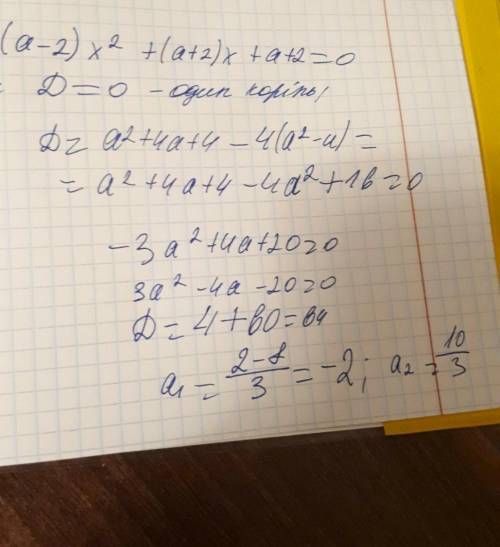 (a-2)x² + (a+2)x + a+2 = 0
D = 0 - один корінь,
D = a² + 4a + 4 - 4(a² - 4) =
= a² + 4a + 4 - 4a² + 16 = 0
-3a² + 4a + 20 = 0
3a² - 4a - 20 = 0
D = 4 + 60 = 64
a₁ = (2-8)/3 = -2; a₂ = 10/3